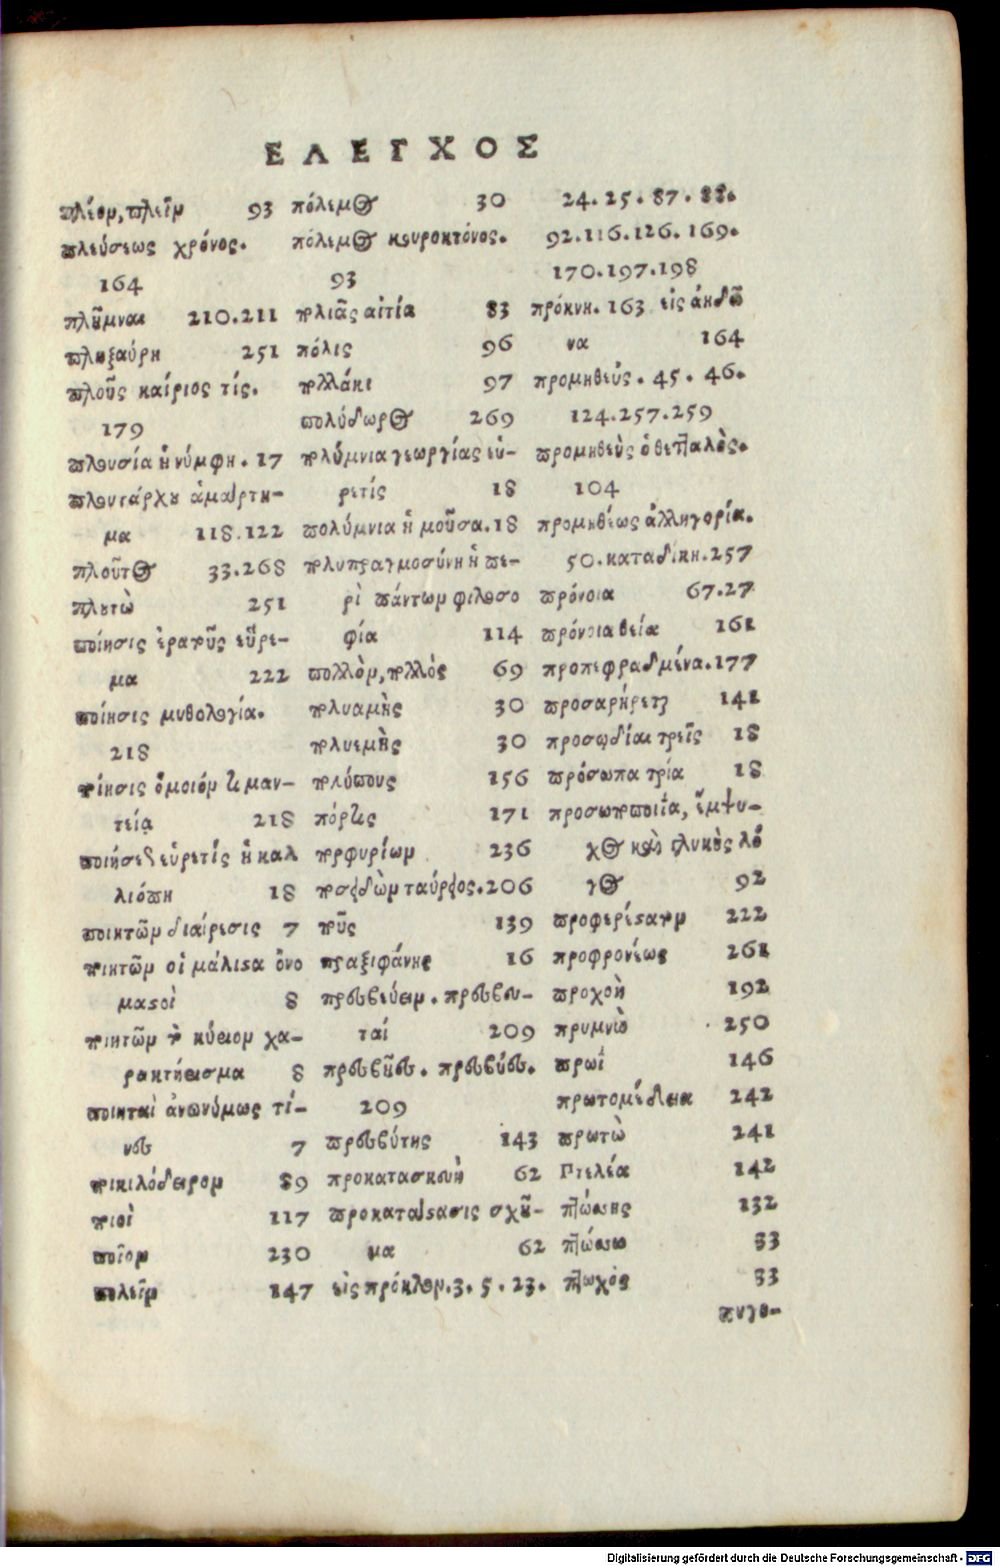 ΕΛΕΓΧΟΣ
πλέον, πλεῖν 93
πλεύσεως χρόνος.
164
πλῆμναι 210.211
πληξαύρη 251
πλοῦς καίριος τίς.
179
πλουσία ἡ νύμφη. 17
πλουτάρχου ἁμαρτη-
μα 118.122
πλοῦτος 33.268
πλουτὼ 251
ποίησις ἐρατοῦς εὕρε-
μα 222
ποίησις μυθολογία.
218
ποίησις ὅμοιόν τι μαν-
τεία 218
ποιήσεως εὑρετὶς ἡ καλ
λιόπη 18
ποιητῶν διαίρεσις 7
ποιητῶν οἱ μάλιστα ὀνο
μαστοὶ 8
ποιητῶν τὸ κύριον χα-
ρακτήρισμα 8
ποιηταὶ ἀνωνύμως τί-
νες 7
ποικιλόδειρον 89
ποιοὶ 117
ποῖον 230
πολεῖν 147
πόλεμος 30
πόλεμος κουροκτόνος.
93
πολιᾶς αἰτία 83
πόλις 96
πολλάκι 97
πολύδωρος 269
πολύμνια γεωργίας εὑ-
ρετίς 18
πολύμνια ἡ μοῦσα. 18
πολυπραγμοσύνη ἡ πε-
ρὶ πάντων φιλοσο
φία 114
πολλὸν, πολλὸς 69
πολυαμὴς 30
πολυεμὴς 30
πολύπους 156
πόρτις 171
πορφυρίων 236
ποσειδῶν ταύρειος. 206
ποῦς 139
πραξιφάνης 16
πρεσβεύειν. πρεσβευ-
ταί 209
πρεσβῆες. πρεσβύες.
209
πρεσβύτης 143
προκατασκευὴ 62
προκατάστασις σχῆ-
μα 62
εἰς πρόκλον. 3. 5. 23.
24. 25. 87. 88.
92. 116. 126. 169.
170. 197. 198
πρόκνη. 163 εἰς ἀηδό
να 164
προμηθεύς. 45. 46.
124. 257. 259
προμηθεὺς ὁ θετταλὸς.
104
προμηθέως ἀλληγορία.
50. καταδίκη. 257
πρόνοια 67.27
πρόνοια θεία 161
προπεφραδμένα. 177
προσαρήρεται 141
προσῳδίαι τρεῖς 18
πρόσωπα τρία 18
προσωποποιΐα, ἔμψυ-
χος καὶ γλυκὺς λό
γος 92
προφερέστατον 222
προφρονέως 261
προχοὴ 192
πρυμνὼ 250
πρωΐ 146
πρωτομέδεια 242
πρωτὼ 241
Πτελέα 142
πτώσης 132
πτώσσω 33
πτωχὸς 33
πυγο-
Digitalisierung gefördert durch die Deutsche Forschungsgemeinschaft - DFG